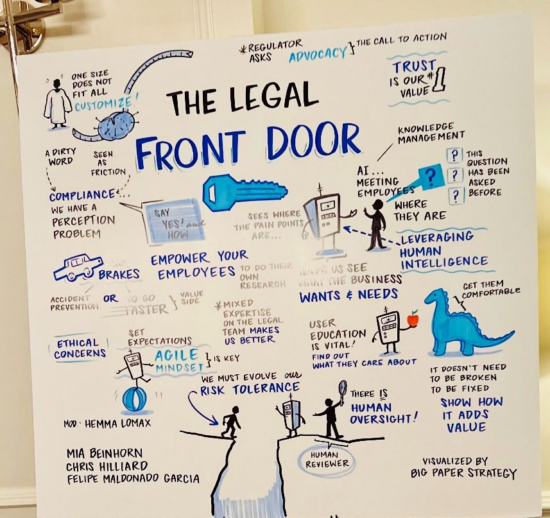 *REGULATOR
ASKS
ADVOCACY
THE CALL TO ACTION
ONE SIZE
DOES NOT
FIT ALL
CUSTOMIZE!
TRUST
IS OUR #1
VALUE
THE LEGAL
FRONT DOOR
KNOWLEDGE
MANAGEMENT
A DIRTY
WORD
SEEN
AS
FRICTION
COMPLIANCE
WE HAVE A
PERCEPTION
PROBLEM
SAY
YES! and
HOW
SEES WHERE
THE PAIN POINTS
ARE...
AI...
MEETING
EMPLOYEES
WHERE
THEY ARE
?
?
?
?
THIS
QUESTION
HAS BEEN
ASKED
BEFORE
LEVERAGING
HUMAN
INTELLIGENCE
BRAKES
ACCIDENT
PREVENTION
OR
TO GO
FASTER
VALUE
SIDE
EMPOWER YOUR
EMPLOYEES
TO DO THEIR
OWN
RESEARCH
US SEE
WHAT THE BUSINESS
WANTS & NEEDS
GET THEM
COMFORTABLE
*MIXED
EXPERTISE
ON THE LEGAL
TEAM MAKES
US BETTER
USER
EDUCATION
IS VITAL!
FIND OUT
WHAT THEY CARE ABOUT
ETHICAL
CONCERNS
SET
EXPECTATIONS
AGILE
MINDSET
IS KEY
IT DOESN'T NEED
TO BE BROKEN
TO BE FIXED
SHOW HOW
IT ADDS
VALUE
WE MUST EVOLVE our
RISK TOLERANCE
THERE IS
HUMAN
OVERSIGHT!
HUMAN
REVIEWER
MOD: HEMMA LOMAX
MIA BEINHORN
CHRIS HILLIARD
FELIPE MALDONADO GARCIA
VISUALIZED BY
BIG PAPER STRATEGY